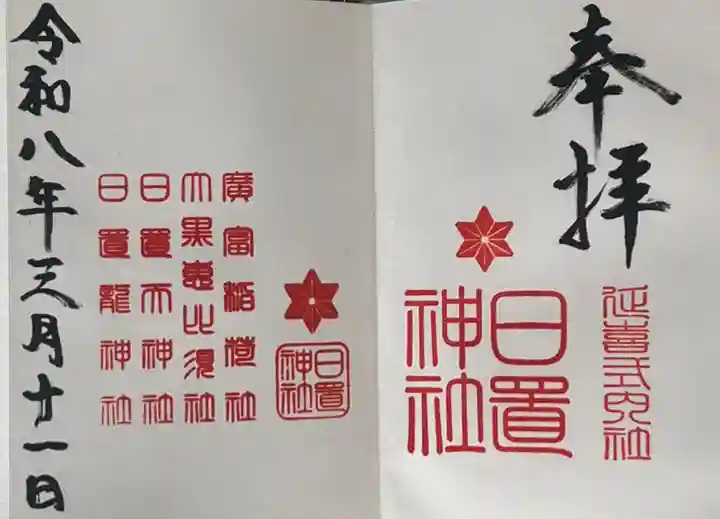 奉拝
延喜式内社
日置
神社
日置
神社
廣富稲荷社
大黒恵比須社
日置天神社
日置龍神社
令和八年三月廿一日